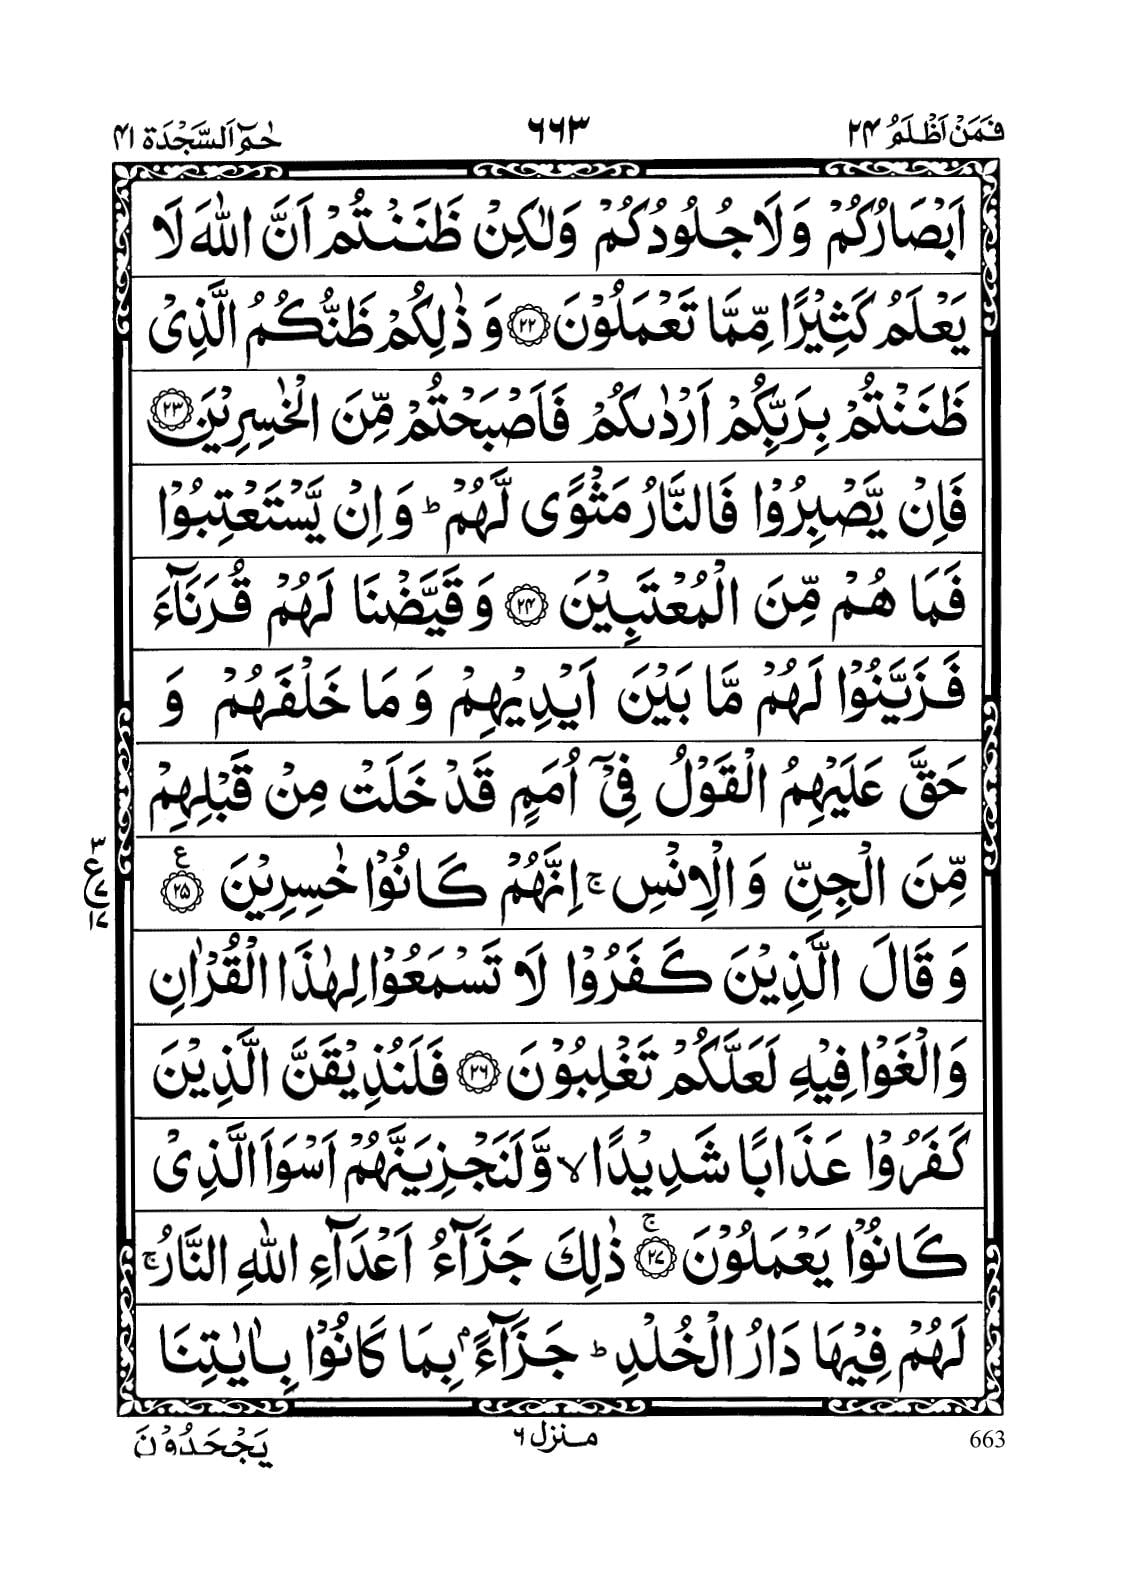 فَمَنْ اَظْلَمُ ۲۴ ٦٦٣ حٰمٓ اَلسَّجْدَة ۴۱
اَبْصَارُكُمْ وَلَا جُلُوْدُكُمْ وَلٰكِنْ ظَنَنْتُمْ اَنَّ اللّٰهَ لَا
يَعْلَمُ كَثِيْرًا مِّمَّا تَعْمَلُوْنَ ۝۲۲ وَ ذٰلِكُمْ ظَنُّكُمُ الَّذِىْ
ظَنَنْتُمْ بِرَبِّكُمْ اَرْدٰىكُمْ فَاَصْبَحْتُمْ مِّنَ الْخٰسِرِيْنَ ۝۲۳
فَاِنْ يَّصْبِرُوْا فَالنَّارُ مَثْوًى لَّهُمْ ؕ وَاِنْ يَّسْتَعْتِبُوْا
فَمَا هُمْ مِّنَ الْمُعْتَبِيْنَ ۝۲۴ وَ قَيَّضْنَا لَهُمْ قُرَنَآءَ
فَزَيَّنُوْا لَهُمْ مَّا بَيْنَ اَيْدِيْهِمْ وَ مَا خَلْفَهُمْ وَ
حَقَّ عَلَيْهِمُ الْقَوْلُ فِىْٓ اُمَمٍ قَدْ خَلَتْ مِنْ قَبْلِهِمْ
مِّنَ الْجِنِّ وَ الْاِنْسِ ۚ اِنَّهُمْ كَانُوْا خٰسِرِيْنَ ۝۲۵ ع
۳ ع ۷ ۱۷
وَ قَالَ الَّذِيْنَ كَفَرُوْا لَا تَسْمَعُوْا لِهٰذَا الْقُرْاٰنِ
وَالْغَوْا فِيْهِ لَعَلَّكُمْ تَغْلِبُوْنَ ۝۲۶ فَلَنُذِيْقَنَّ الَّذِيْنَ
كَفَرُوْا عَذَابًا شَدِيْدًا ۙ وَّلَنَجْزِيَنَّهُمْ اَسْوَاَ الَّذِىْ
كَانُوْا يَعْمَلُوْنَ ۝۲۷ ۚ ذٰلِكَ جَزَآءُ اَعْدَآءِ اللّٰهِ النَّارُ ۚ
لَهُمْ فِيْهَا دَارُ الْخُلْدِ ؕ جَزَآءًۢ بِمَا كَانُوْا بِاٰيٰتِنَا
663 منزل ۶ يَجْحَدُوْنَ